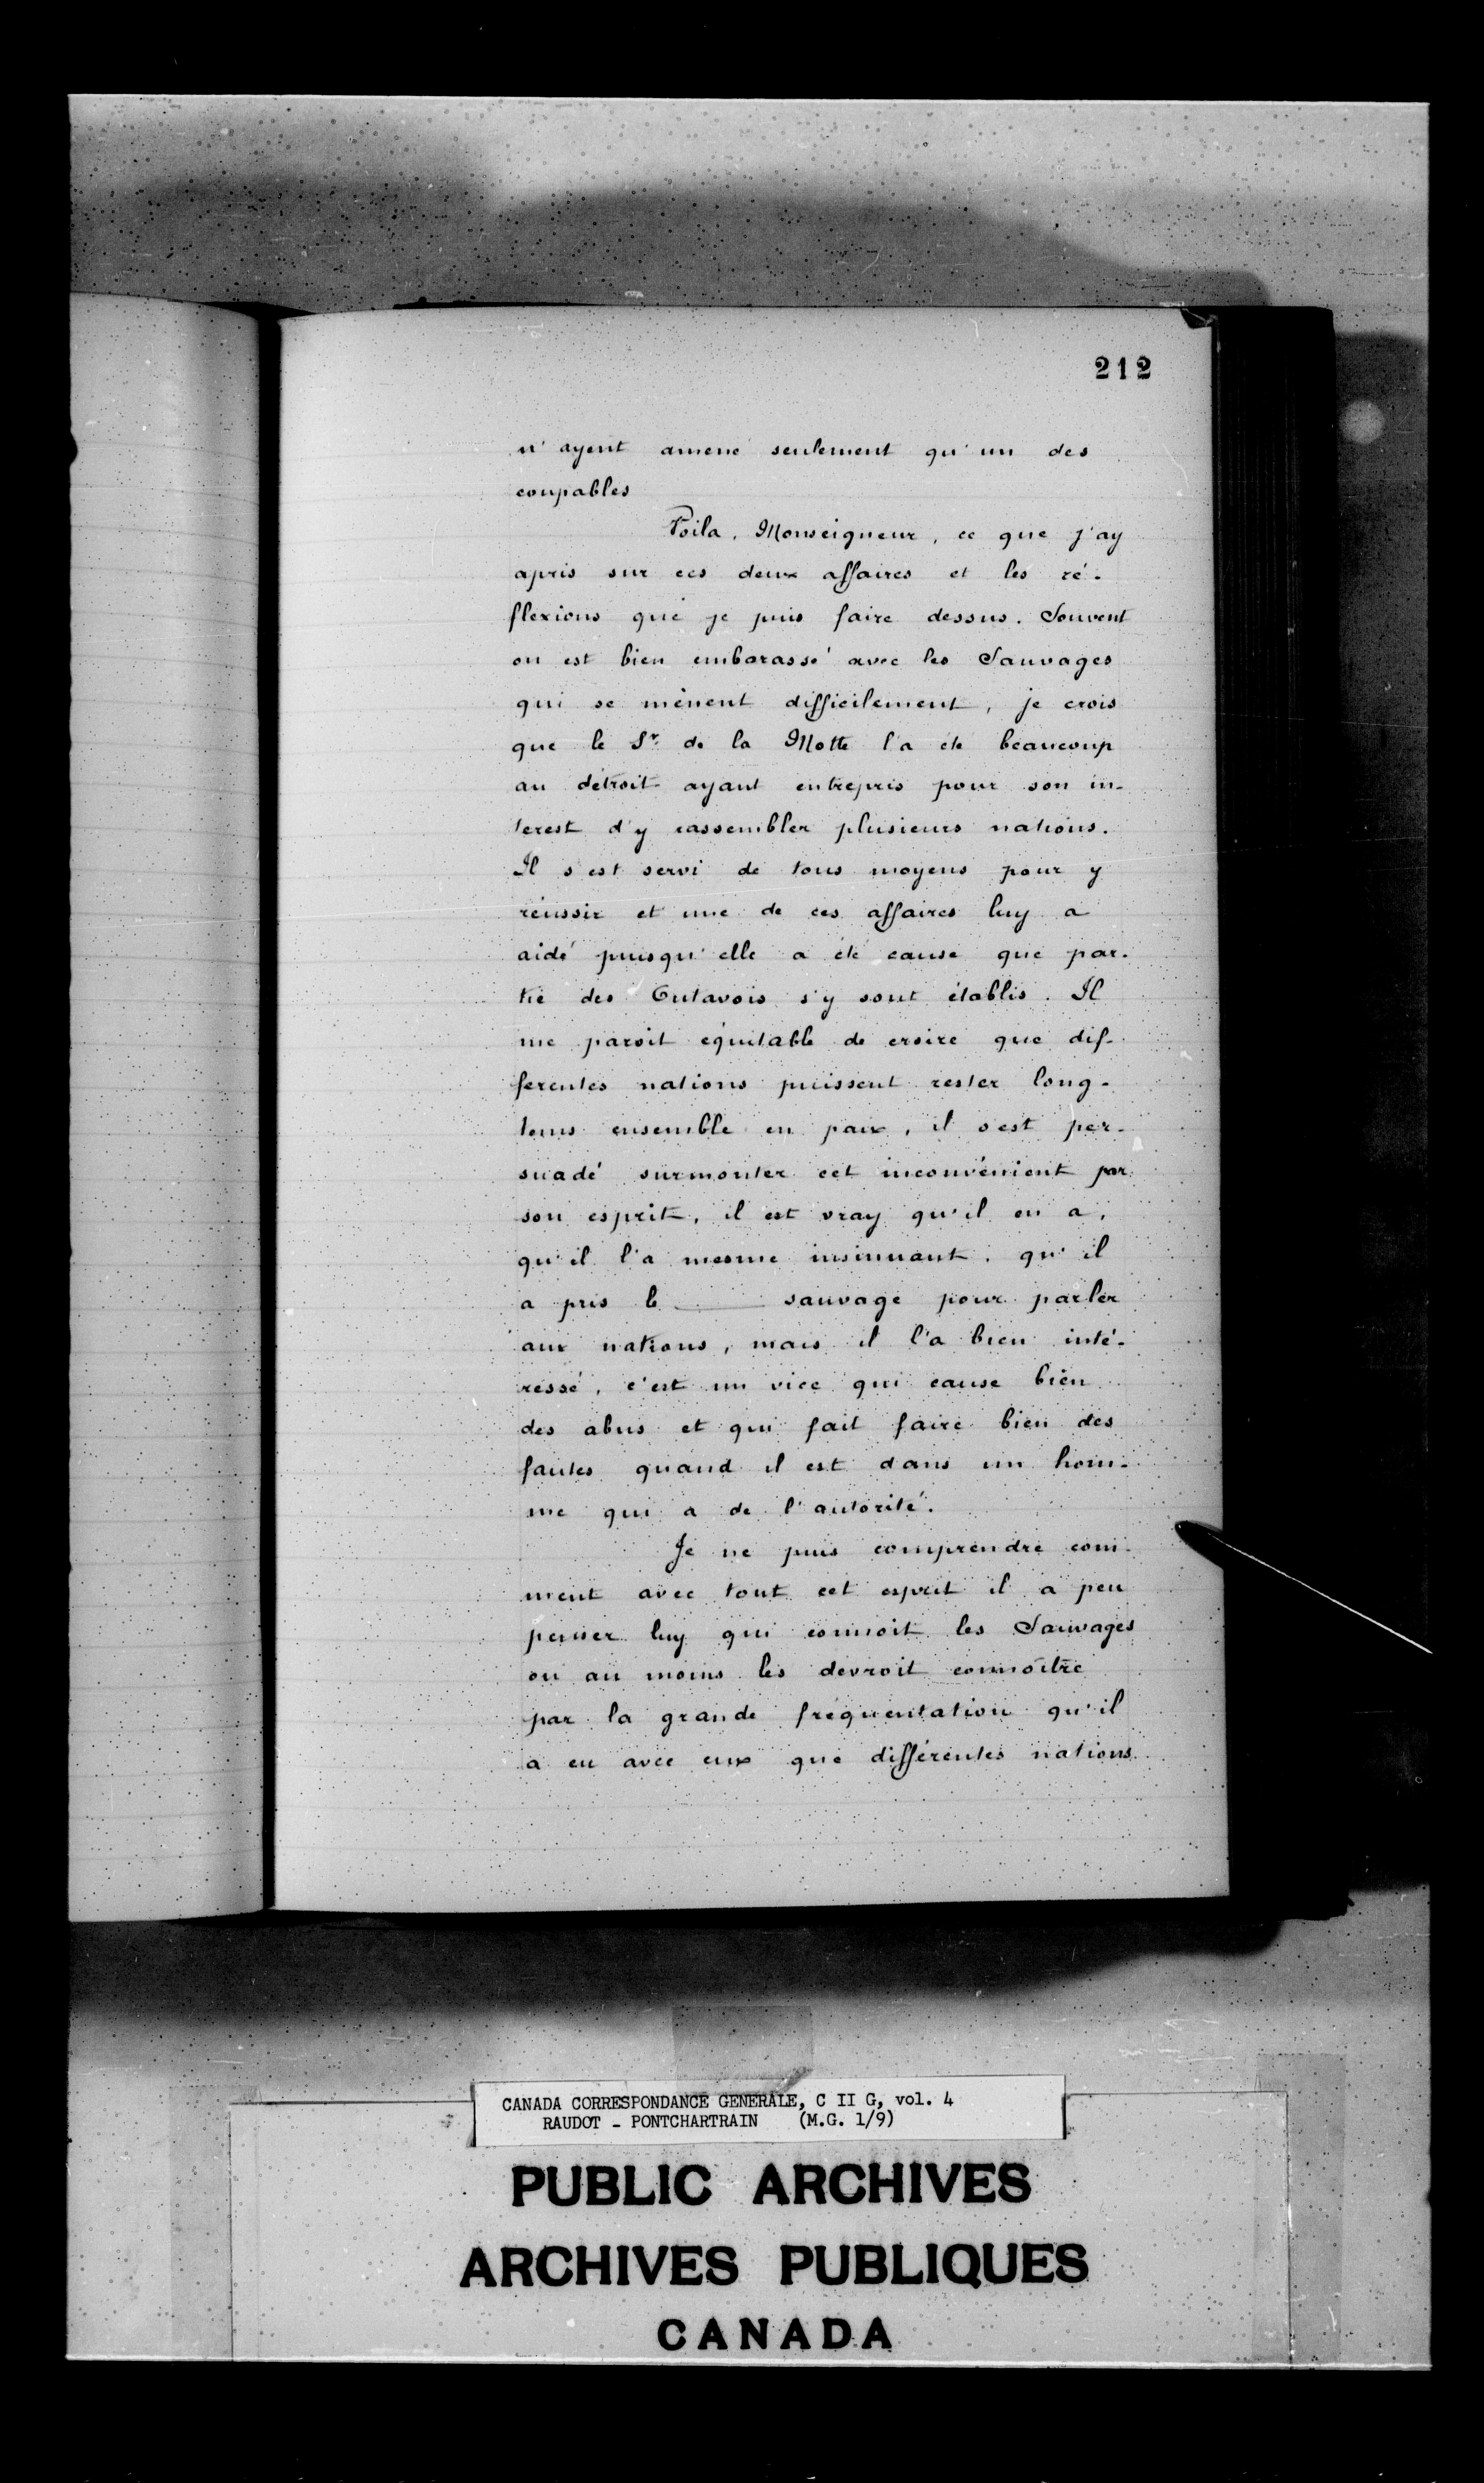 212
n'ayent amené seulement qu'un des
coupables
Voila, Monseigneur, ce que j'ay
apris sur ces deux affaires et les ré-
flexions que je puis faire dessus. Souvent
on est bien embarassé avec les Sauvages
qui se mènent difficilement, je crois
que le Sr. de la Motte l'a été beaucoup
au détroit ayant entrepris pour son in-
terest d'y rassembler plusieurs nations.
Il s'est servi de tous moyens pour y
réussir et une de ces affaires luy a
aidé puisqu'elle a été cause que par-
tie des Outavois s'y sont établis. Il
me paroit équitable de croire que dif-
ferentes nations puissent rester long-
tems ensemble en paix, il s'est per-
suadé surmonter cet inconvénient par
son esprit, il est vray qu'il en a,
qu'il l'a mesme insinuant, qu'il
a pris le ______ sauvage pour parler
aux nations, mais il l'a bien inté-
ressé, c'est un vice qui cause bien
des abus et qui fait faire bien des
fautes quand il est dans un hom-
me qui a de l'autorité.
Je ne puis comprendre com-
ment avec tout cet esprit il a peu
penser luy qui connoit les Sauvages
ou au moins les devroit connoître
par la grande fréquentation qu'il
a eu avec eux que différentes nations
CANADA CORRESPONDANCE GENERALE, C II G, vol. 4
RAUDOT - PONTCHARTRAIN (M.G. 1/9)
PUBLIC ARCHIVES
ARCHIVES PUBLIQUES
CANADA